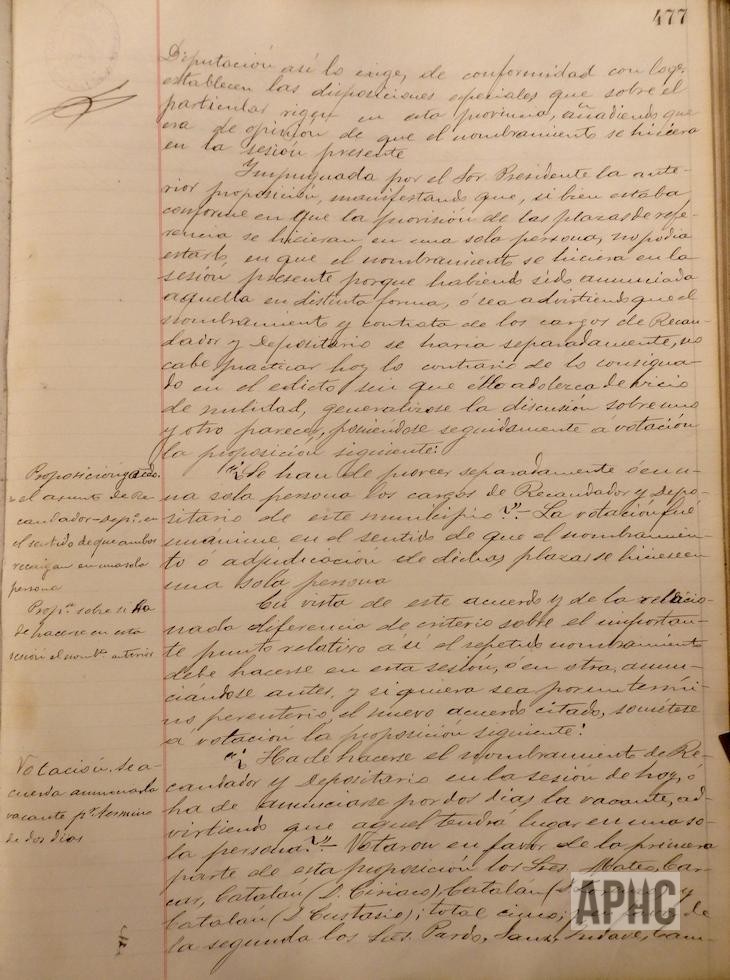 477
Diputación así lo exige, de conformidad con lo qe.
establecen las disposiciones especiales que sobre el
particular rigen en esta provincia, añadiendo que
era de opinión de que el nombramiento se hiciera
en la sesión presente
Impugnada por el Sor. Presidente la ante-
rior proposición, manifestando que, si bien estaba
conforme en que la provisión de las plazas de refe-
rencia se hicieran en una sola persona, no podia
estarlo, en que el nombramiento se hiciera en la
sesión presente porque habiendo sido anunciada
aquella en distinta forma, ó sea advirtiendo que el
nombramiento y contrata de los cargos de Recau-
dador y Depositario se haria separadamente, no
cabe practicar hoy lo contrario de lo consigna-
do en el edicto sin que ello adolezca de vicio
de nulidad, generalizóse la discusión sobre uno
y otro parecer, poniendose seguidamente a votación
la proposición siguiente:
Proposicion
el asunto de Re-
caudador-Depo. en
el sentido de que ambos
recaigan en una sola
persona
"¿Se han de proveer separadamente ó en u-
na sola persona los cargos de Recaudador y Depo-
sitario de este municipio?"- La votación fué
unánime en el sentido de que el nombramien-
to ó adjudicación de dichas plazas se hiciese en
una sola persona
Propn. sobre si ha
de hacerse en esta
sesión el nombto. anterior
En vista de este acuerdo y de la relacio-
nada diferencia de criterio sobre el importan-
te punto relativo á si el repetido nombramiento
debe hacerse en esta sesión, ó en otra, anun-
ciándose antes, y siquiera sea por un termi-
no perentorio, el nuevo acuerdo citado, sométese
á votación la proposición siguiente:
Votación. Se a-
cuerda anunciar la
vacante pr. termino
de dos dias
"¿Ha de hacerse el nombramiento de Re-
caudador y Depositario en la sesión de hoy, ó
ha de anunciarse por dos dias la vacante, ad-
virtiendo que aquel tendrá lugar en una so-
la persona?"- Votaron en favor de la primera
parte de esta proposición los Sres. Mateo, Gar-
cas, Catalan (D. Ciriaco), Catalan (D. y
Catalan (D. Eustasio); total cinco; de
la segunda los Sres. Pardo, Sanz,
APHC